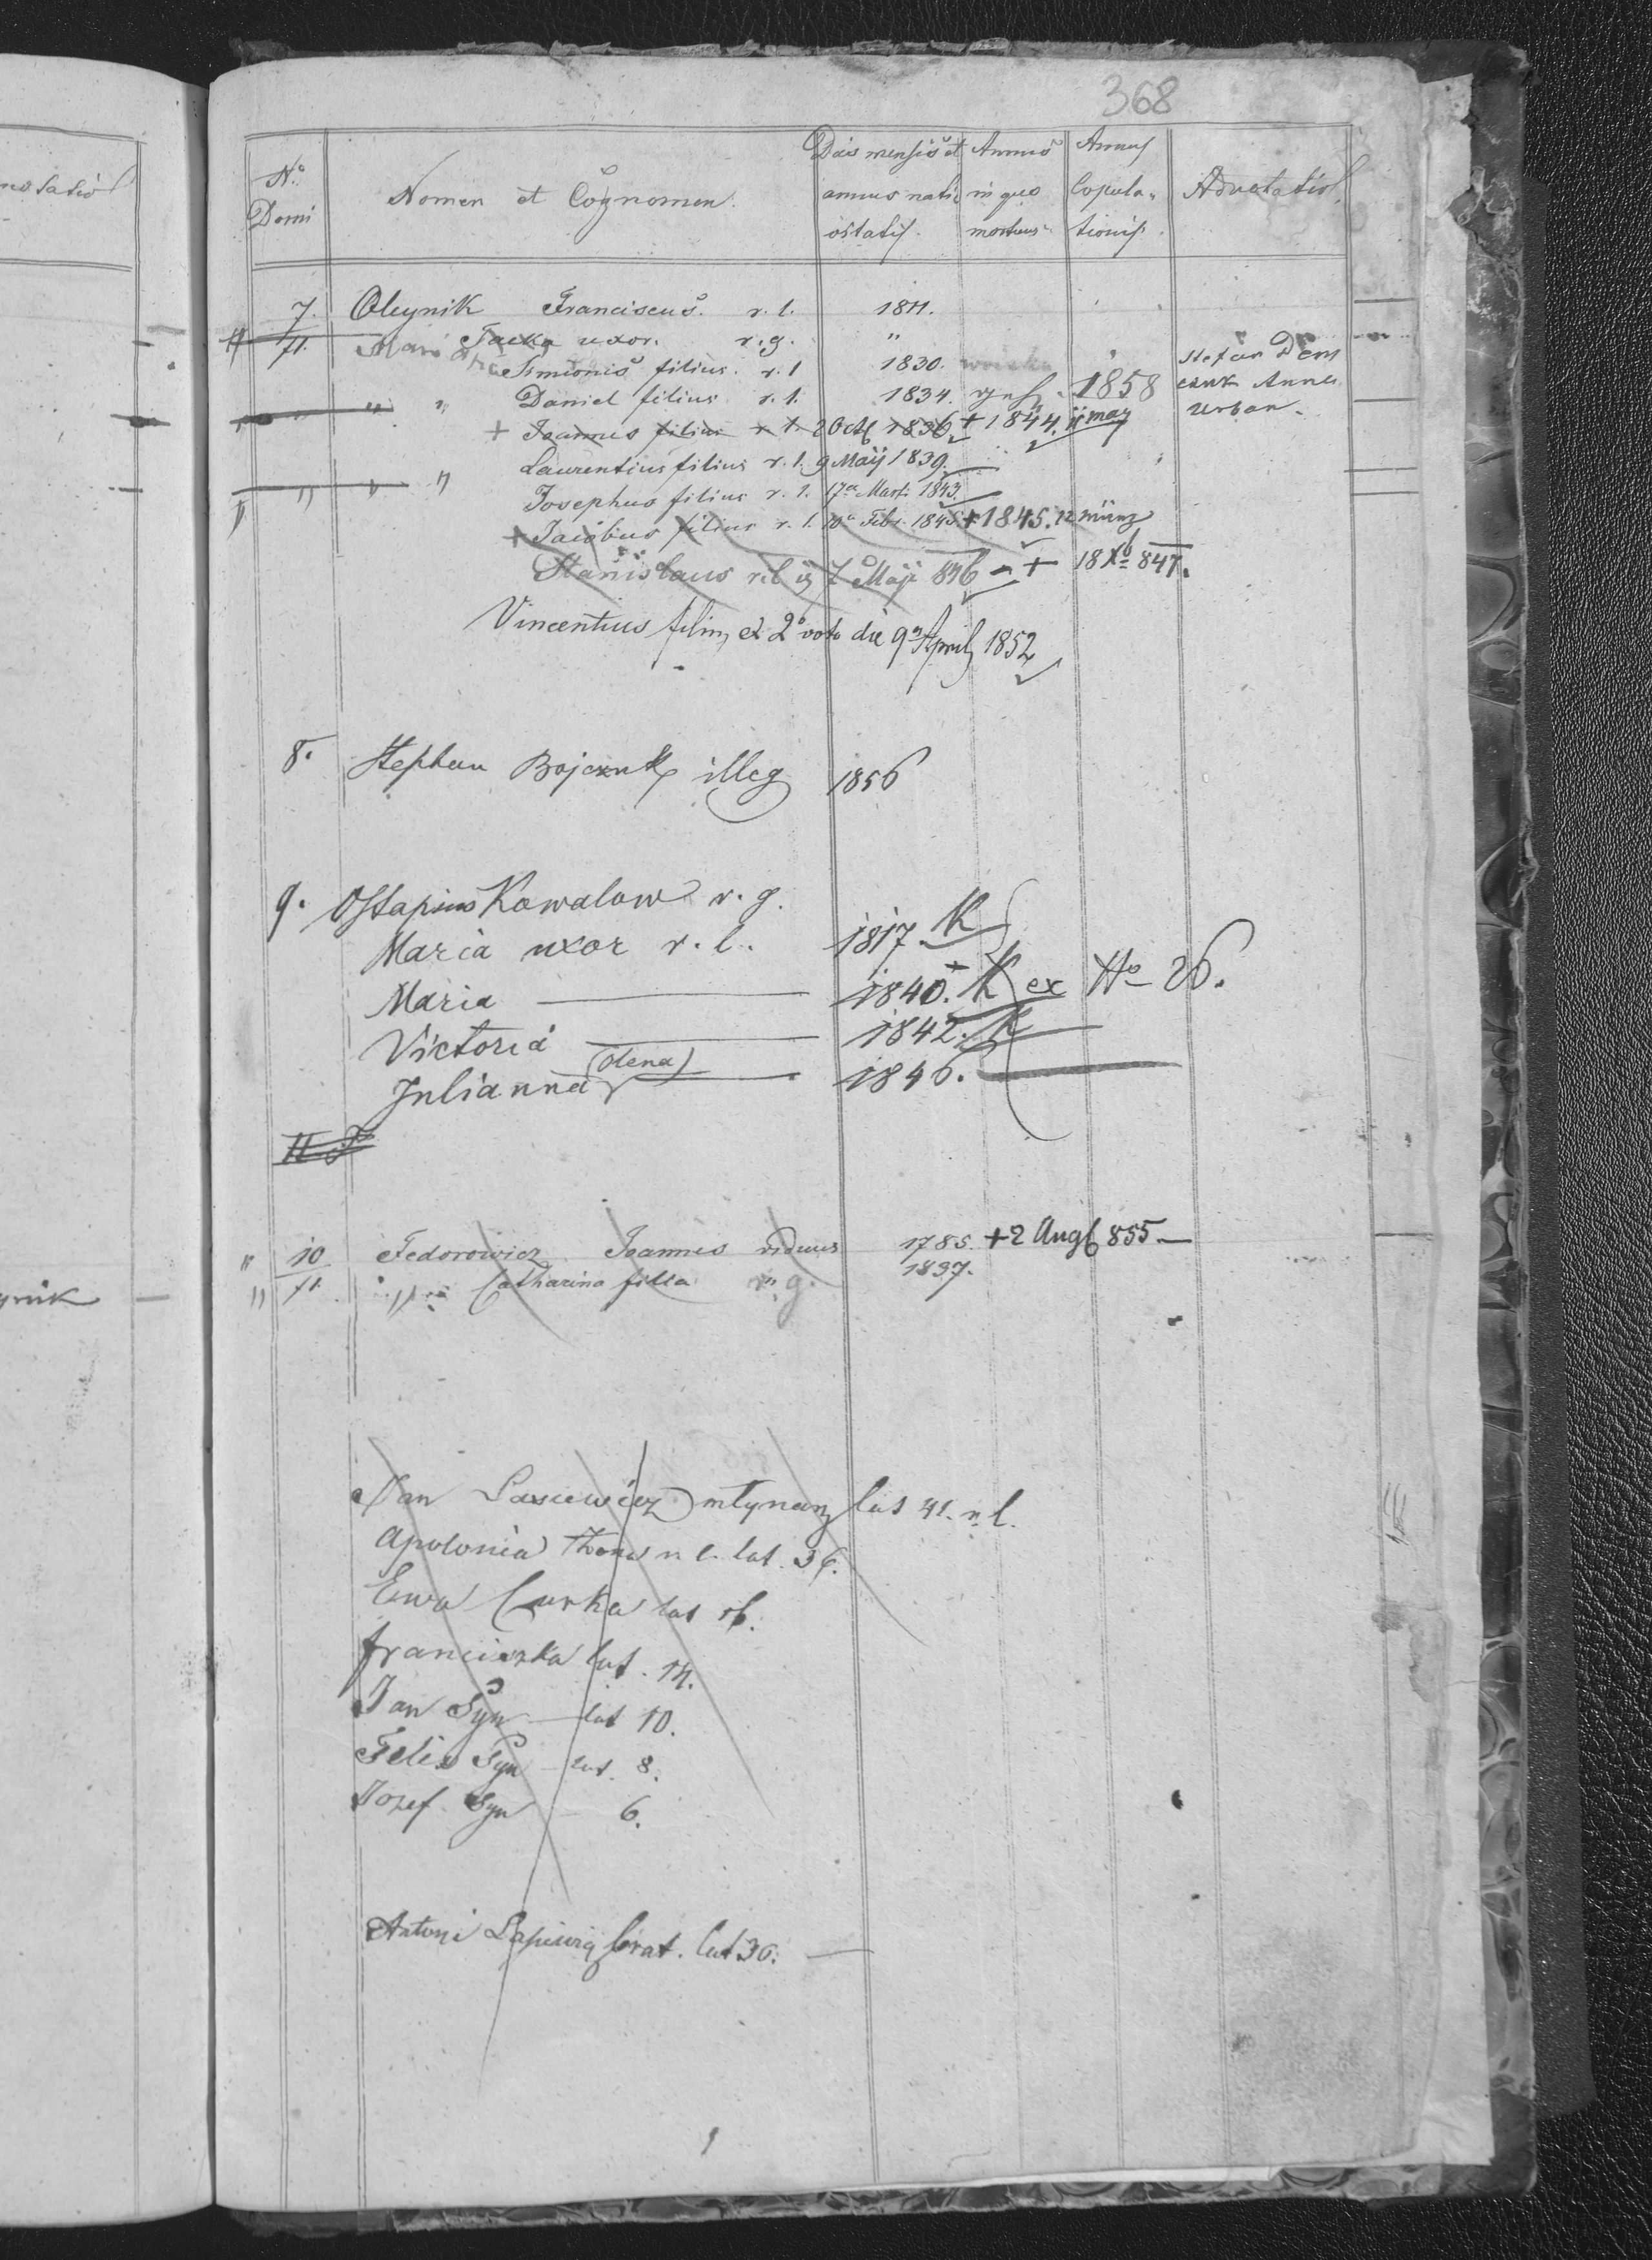 368
No. Domi | Nomen et Cognomen. | Dies mensis et annus nati ostatis. | Annus in quo mortuus | Annus Copulationis. | Advotatio
7. Oleynik Franciscus. r. l. 1811.
71. Tacka uxor. r. g. "
Simionis filius. r. l 1830. Stefan Dem
Daniel filius r. l. 1834. 1858 czuk Anna
" " + Joannes filius r. l. 2 Octb 1836 + 1844. 11 may Urban.
Laurentius filius r. l. 9 Maij 1839.
" " " Josephus filius r. l. 17a Marti 1843.
+ Jacobus filius r. l. 10a Febr. 1845 + 1845. 12 münz
Stanislaus r. l. 7 Maji 846 - + 18 Xb 847.
Vincentius filius ex 2o voto die 9a April 1852
8. Stephan Bojczuk illeg 1856
9. Ostapius Kowalow r. g.
Maria uxor r. l. 1817 K
Maria 1840. K ex No 26.
Victoria 1842. K
(Olena)
Julianna 1846.
" 10 Fedorowicz Joannes viduus 1785. + 2 Augb 855 —
" 71. " Catharina filia r. g. 1837.
Jan młynarz lat 41. r. l.
Apolonia Żona r. l. lat. 36.
Ewa Curka lat 16.
Franciszka lat. 14.
Jan Syn — lat 10.
Felix Syn — lat. 8.
Jozef Syn — 6.
Antoni brat. lat 36. —
ynik —